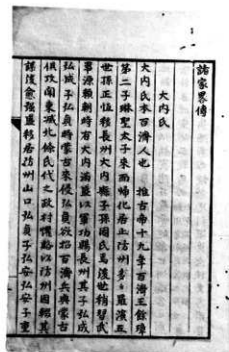 諸家畧傳
大内氏
大内氏本百濟人也 推古帝十九年百濟王餘璋
第二子琳聖太子來而歸化居止防州多々羅濱五
世孫正恆移長州大内縣子孫因氏焉後世稍習武
事源賴朝時有大内滿盛以軍功賜長州其子弘成
弘成子弘貞時蒙古來侵弘貞欲招百濟兵與蒙古
俱攻關東滅北條氏代之政村
以防州
其
謀後愈強盛移居防州山口弘貞子弘安弘安子重